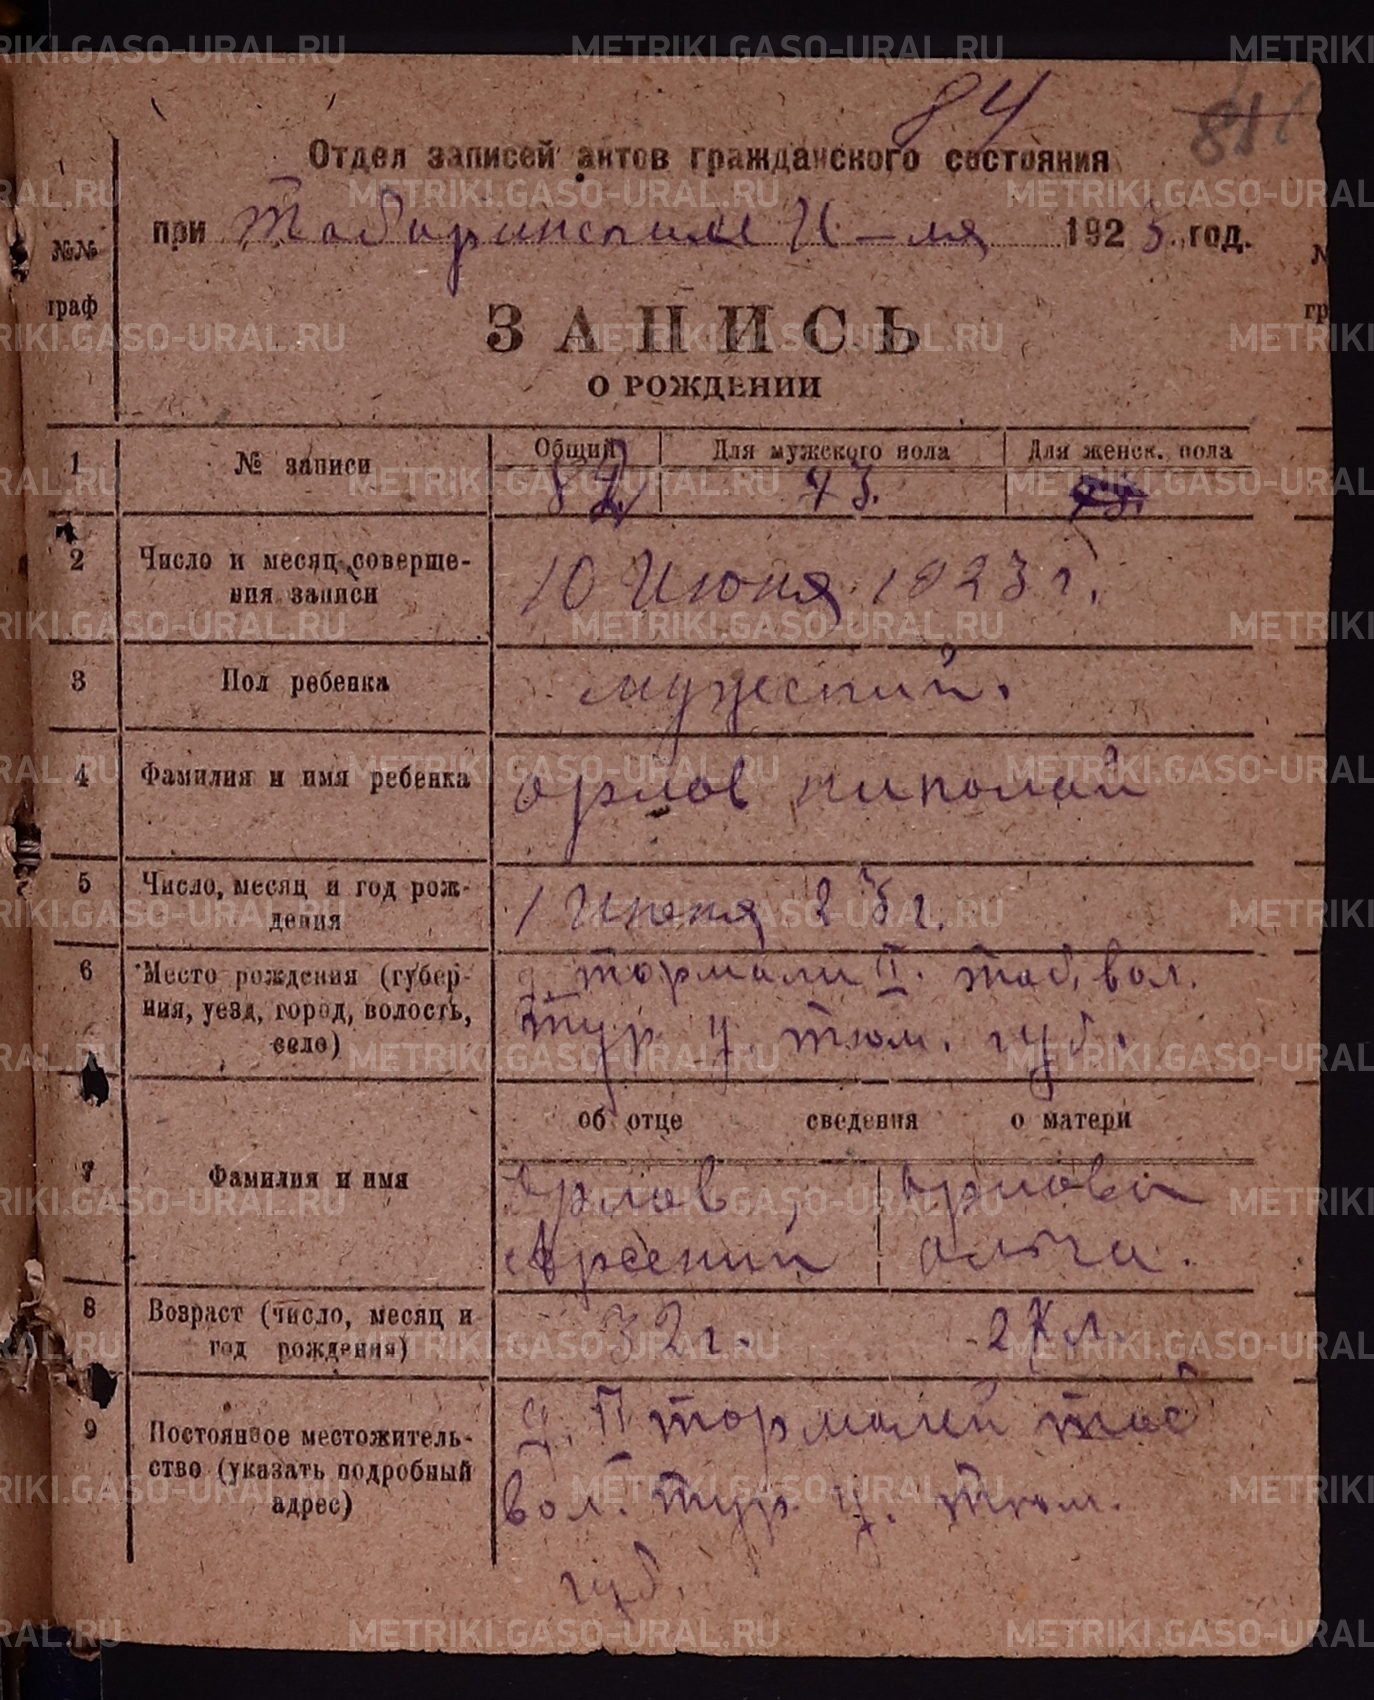 84
811
Отдел записей актов гражданского состояния
при Таборинским И-ля 1923 год.
№№
граф
ЗАПИСЬ
О РОЖДЕНИИ
1 № записи Общий Для мужского пола Для женск. пола
82 43.
2 Число и месяц соверше-
ния записи
10 Июня 1923 г.
3 Пол ребенка мужеский.
4 Фамилия и имя ребенка орлов николай
5 Число, месяц и год рож-
дения
1 Июня 23 г.
6 Место рождения (губер-
ния, уезд, город, волость,
село)
д. тормали II. таб. вол.
тур у. тюм. губ.
об отце сведения о матери
7 Фамилия и имя
орлов Арсений
орлова ольга.
8 Возраст (число, месяц и
год рождения)
32 г. 27 л.
9 Постоянное местожитель-
ство (указать подробный
адрес)
д. П тормалей таб
вол. тур у. тюм.
губ.
METRIKI.GASO-URAL.RU